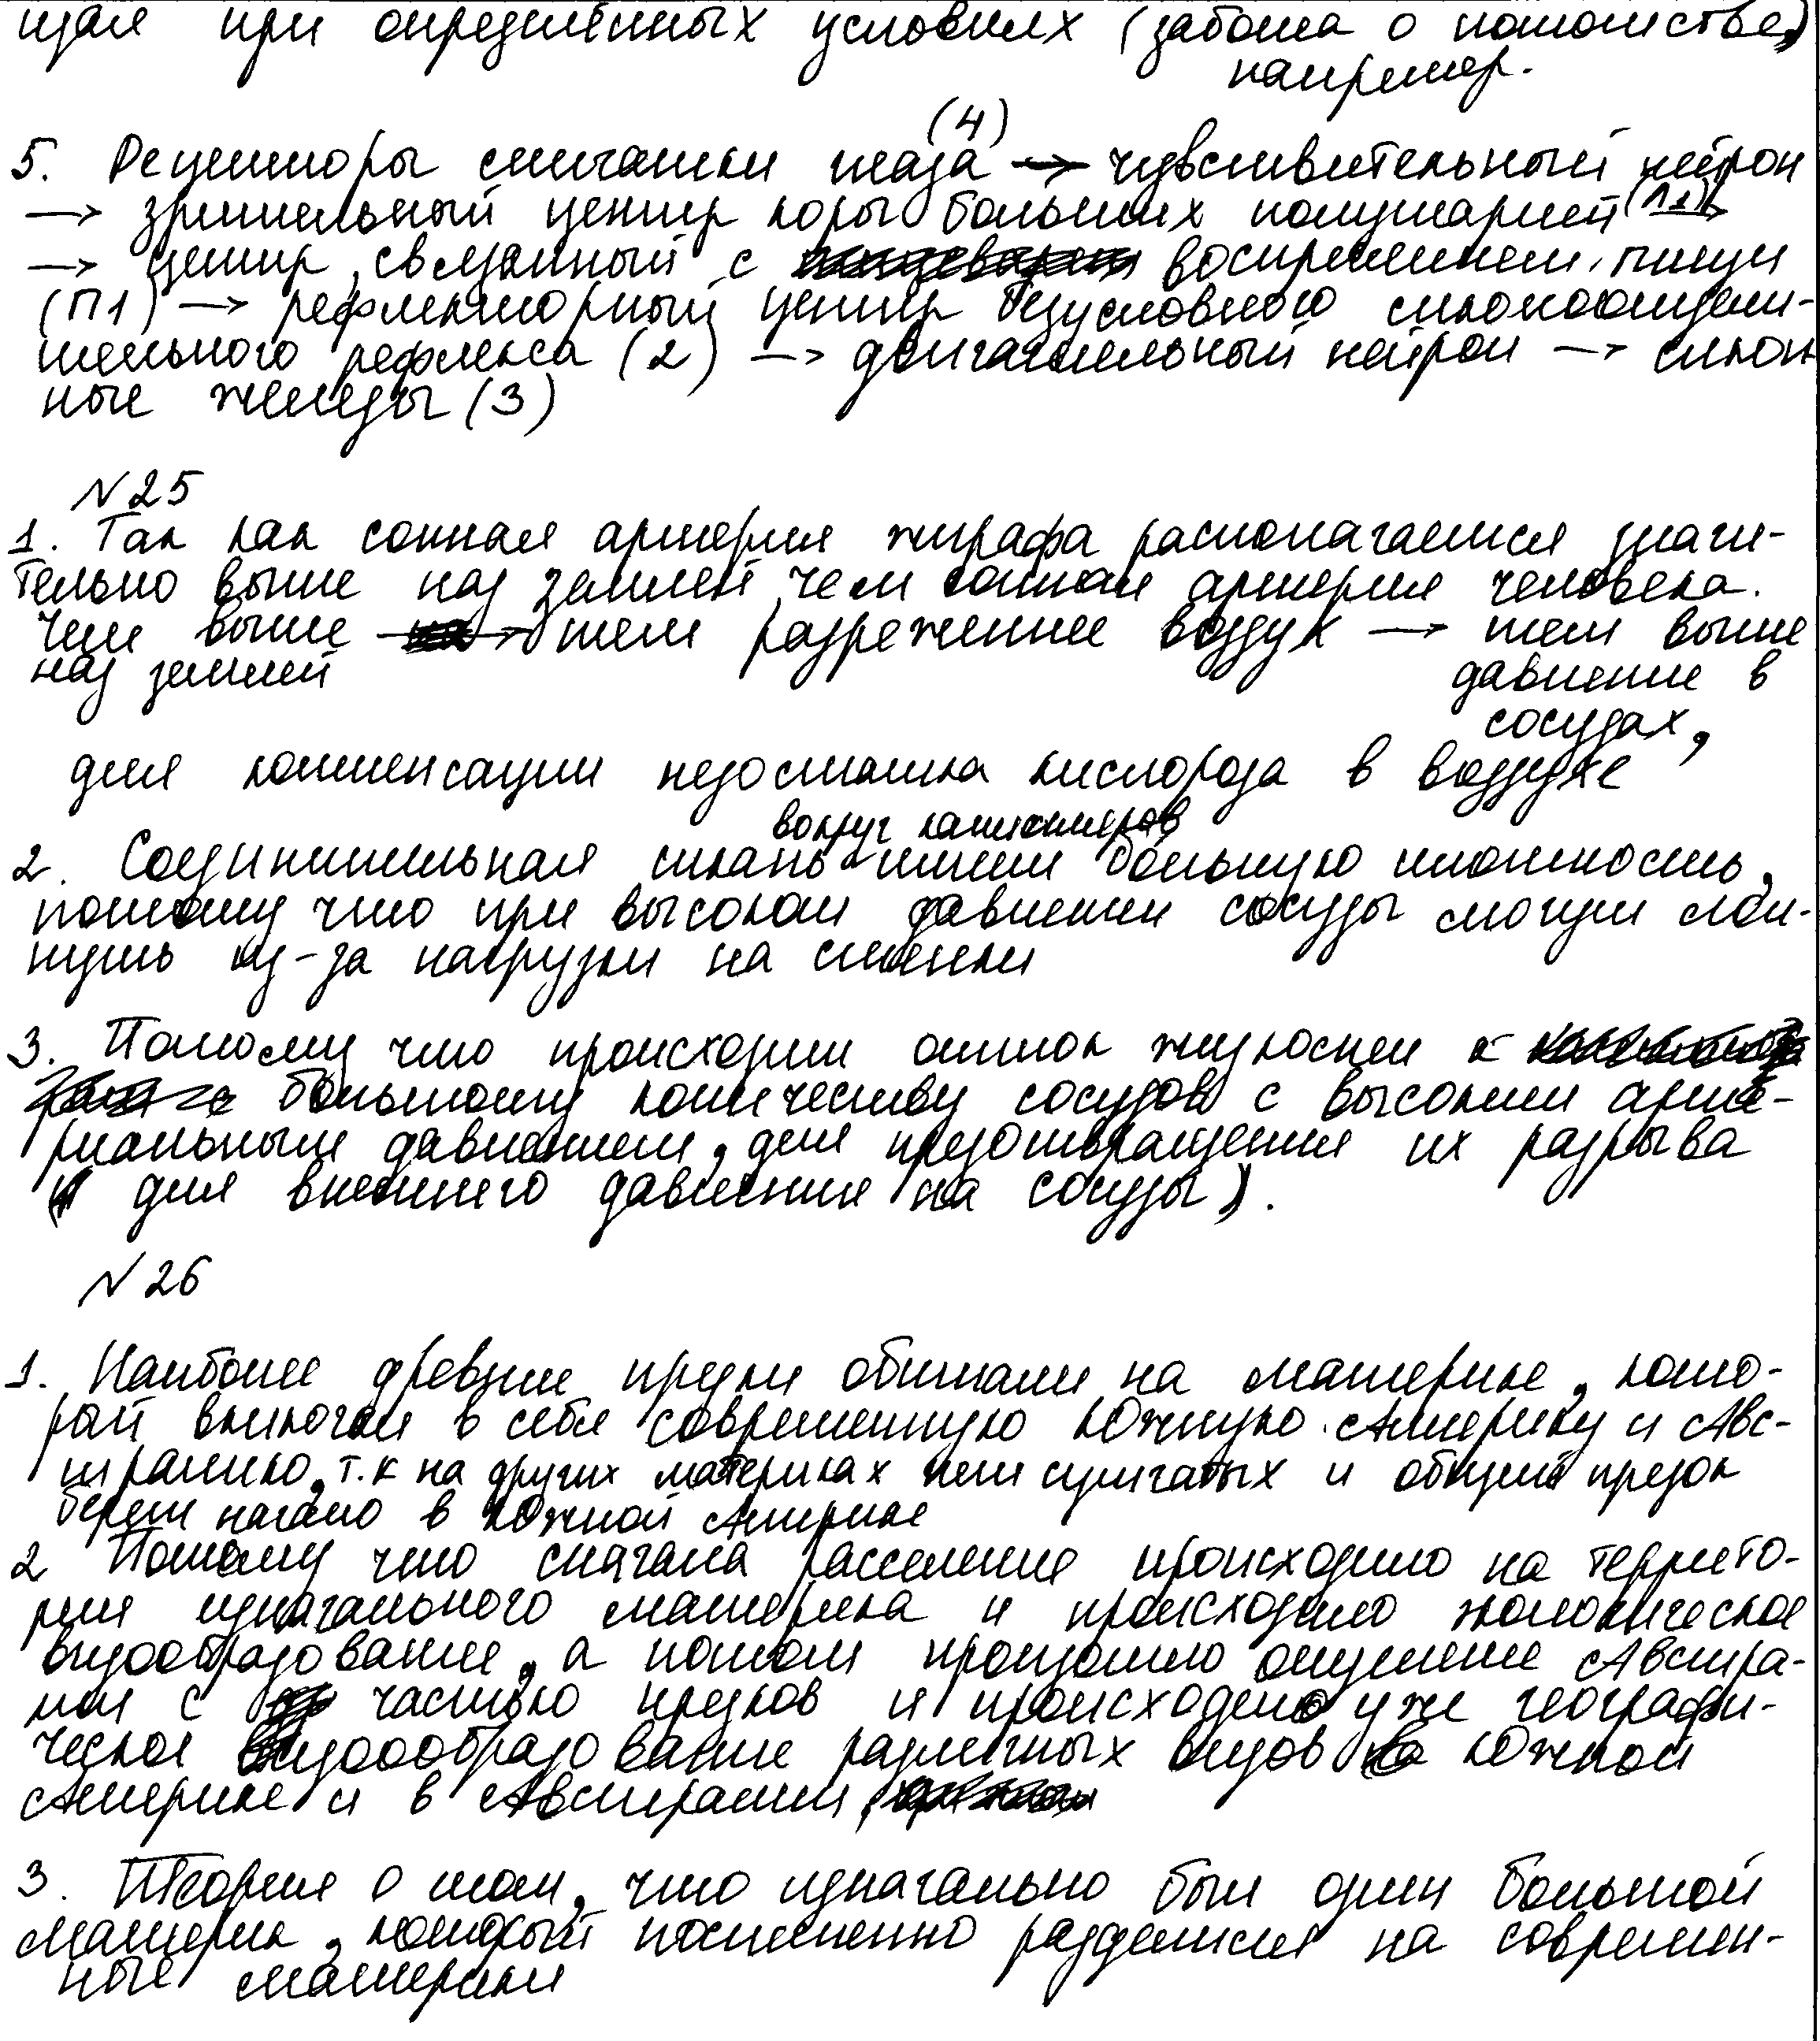 щая при определённых условиях (забота о потомстве,)
например.
(4)
5. Рецепторы сетчатки глаза → чувствительный нейрон
→ зрительный центр коры больших полушарий
→ центр, связанный с восприятием пищи
(П1) → рефлекторный центр безусловного слюноотдели-
тельного рефлекса (2) → двигательный нейрон → слюн
ные железы (3)
№25
1. Так как сонная артерия жирафа располагается значи-
тельно выше над землей, чем сонная артерия человека.
Чем выше → тем разреженнее воздух → тем выше
над землей
давление в
сосудах,
для компенсации недостатка кислорода в воздухе
вокруг капилляров
2. Соединительная ткань имеет большую плотность,
потому что при высоком давлении сосуды могут лоп-
нуть из-за нагрузки на стенки
3. Потому что происходит отток жидкости к
большому количеству сосудов с высоким арте-
риальным давлением, для предотвращения их разрыва
(для внешнего давления на сосуды).
№26
1. Наиболее древние предки обитали на материке, кото-
рый включал в себя современную Южную Америку и Авс-
тралию, т.к на других материках нет сумчатых и общий предок
берет начало в Южной Америке
2 Потому что сначала расселение происходило на террито-
рии изначального материка и происходило экологическое
видообразование, а потом произошло отделение Австра-
лии с частью предков и происходило уже географи-
ческое видоообразование различных видов в Южной
Америке и в Австралии
3. Теория о том, что изначально был один большой
материк, который постепенно разделился на современ-
ные материки